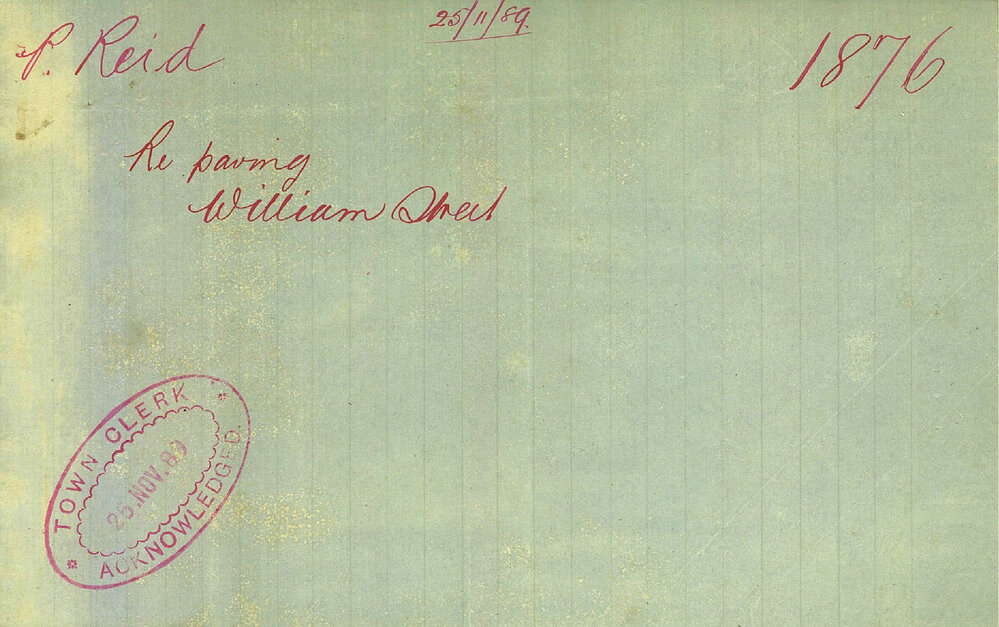 25/11/89.
P. Reid
1876
Re paving
William Street
TOWN CLERK
25.NOV.89
ACKNOWLEDGED.